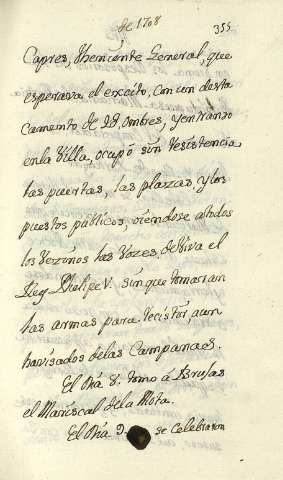 de 1708
355
Capres, theniente General, que
esperava el excito, con un desta
camento de 28 ombres, y entranzo
en la Villa, ocupò sin resistencia
las puertas, las plazas, y los
puestos publicos, oiendose a todos
los Vezinos las Vozes, de Viva el
Rey Phelipe V. sin que tomaran
las armas para recistir, aun
havisados de las Campanas.
El Dia 8. tomo à Brujas
el Mariscal de la Mota.
El Dia 9 se Celebraron